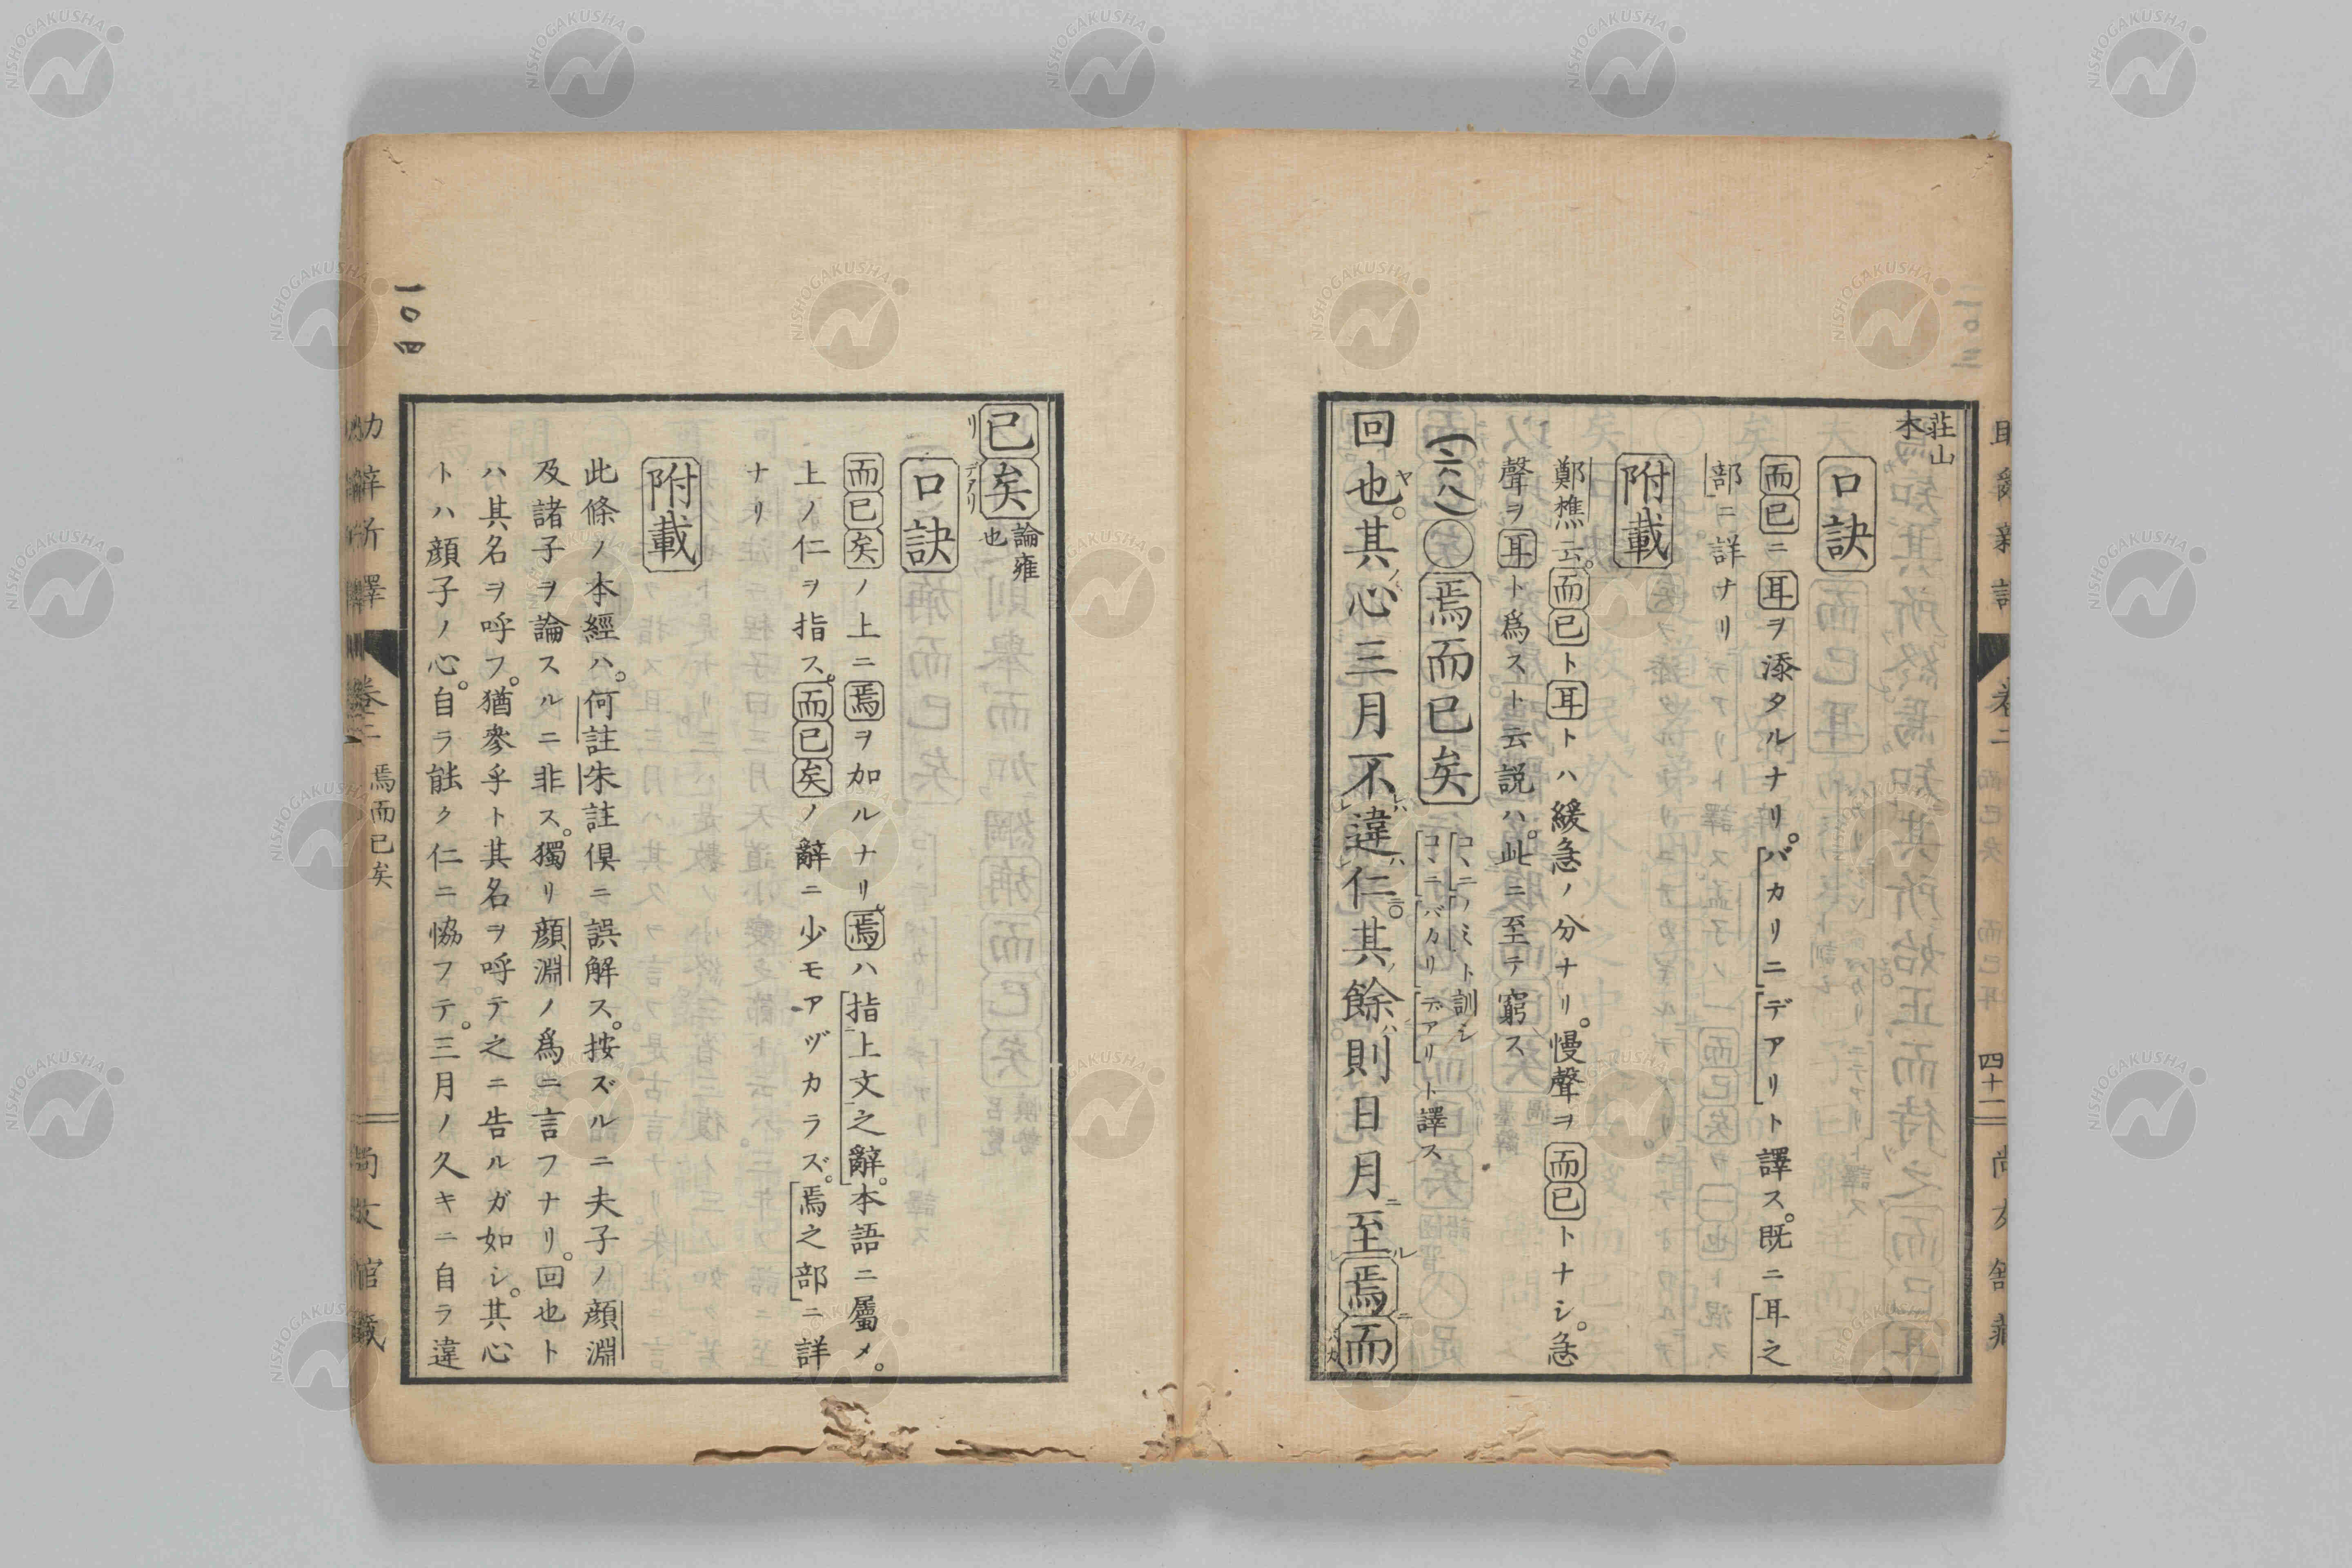 荘山
木
口訣
而已ニ耳ヲ添タルナリ。バカリニデアリト譯ス。既ニ耳之
部ニ詳ナリ
附載
鄭樵云。而已ト耳トハ緩急ノ分ナリ。慢聲ヲ而已トナシ。急
聲ヲ耳ト爲スト云説ハ。此ニ至テ窮ス
(一六八)〇焉而已矣 コヽニノミト訓シ
コヽニバカリデアリト譯ス
回也。其心三月不違仁。其餘則日月至焉而
四十一
一〇三
已矣 論雍
也
口訣
而已矣ノ上ニ焉ヲ加ルナリ。焉ハ指上文之辭。本語ニ屬メ。
上ノ仁ヲ指ス。而已矣ノ辭ニ少モアヅカラズ。焉之部ニ詳
ナリ
附載
此條ノ本經ハ。何註朱註倶ニ誤解ス。按ズルニ夫子ノ顔淵
及諸子ヲ論スルニ非ス。獨リ顔淵ノ爲ニ言フナリ。回也ト
ハ其名ヲ呼フ。猶參乎ト其名ヲ呼テ之ニ告ルガ如シ。其心
トハ顔子ノ心。自ラ能ク仁ニ恊フテ。三月ノ久キニ自ラ違
卷二
焉而已矣
一〇四
NISHOGAKUSHA